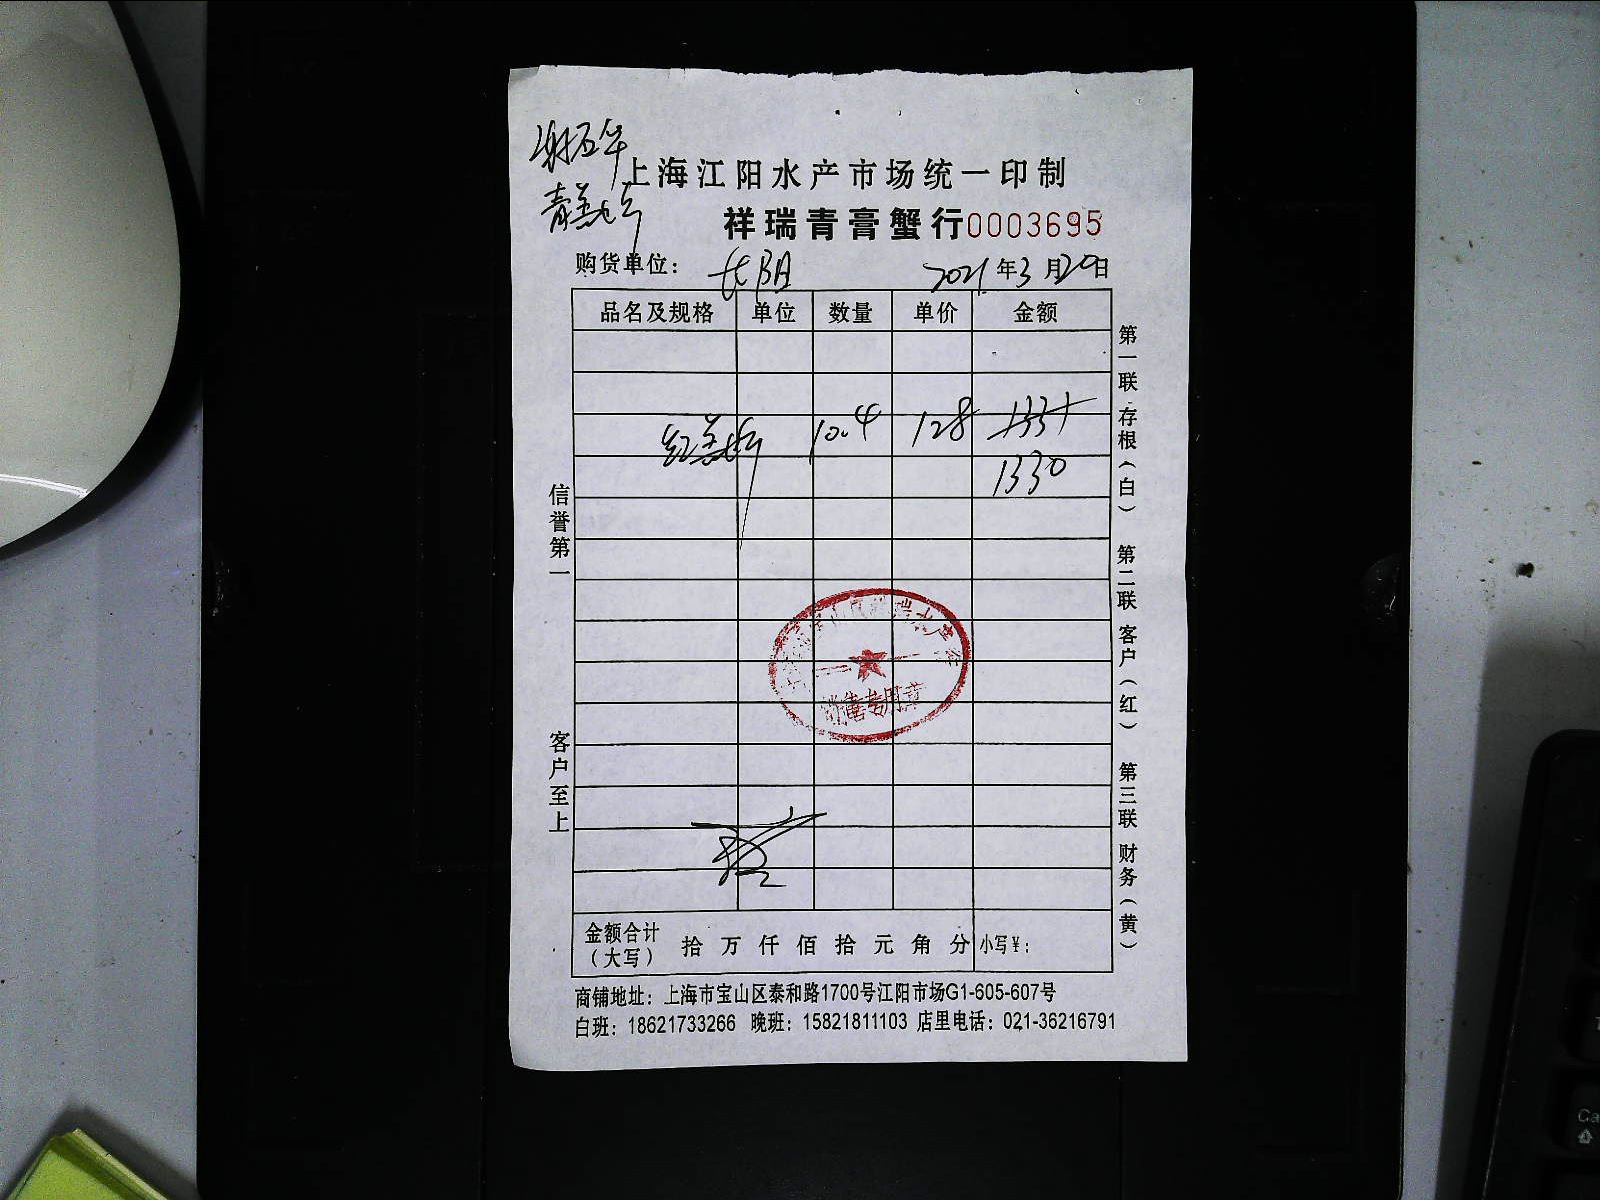 上海江阳水产市场统一印制
祥瑞青膏蟹行0003695
购货单位： 长阳 2021年3月20日
品名及规格 单位 数量 单价 金额
10.4 128 1331
1330
销售专用章
金额合计（大写） 拾 万 仟 佰 拾 元 角 分 小写¥：
商铺地址：上海市宝山区泰和路1700号江阳市场G1-605-607号
白班：18621733266 晚班：15821811103 店里电话：021-36216791
信誉第一
客户至上
第一联 存根（白） 第二联 客户（红） 第三联 财务（黄）